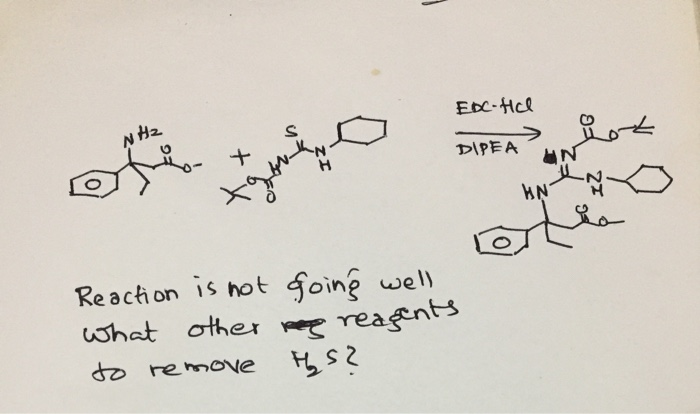 EDC-HCl
DIPEA
NH2
O
O-
+
O
O
HN
S
N
H
O
O
N
HN
N
H
O
O
Reaction is not going well
what other reagents
to remove H2S?